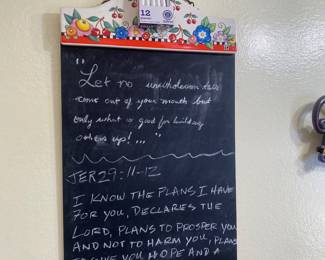 12
"
Let no unwholesome talk
come out of your mouth but
only what is good for building
others up!..."
JER 29:11-12
I KNOW THE PLANS I HAVE
FOR YOU, DECLARES THE
LORD, PLANS TO PROSPER YOU
AND NOT TO HARM YOU, PLANS
TO GIVE YOU HOPE AND A